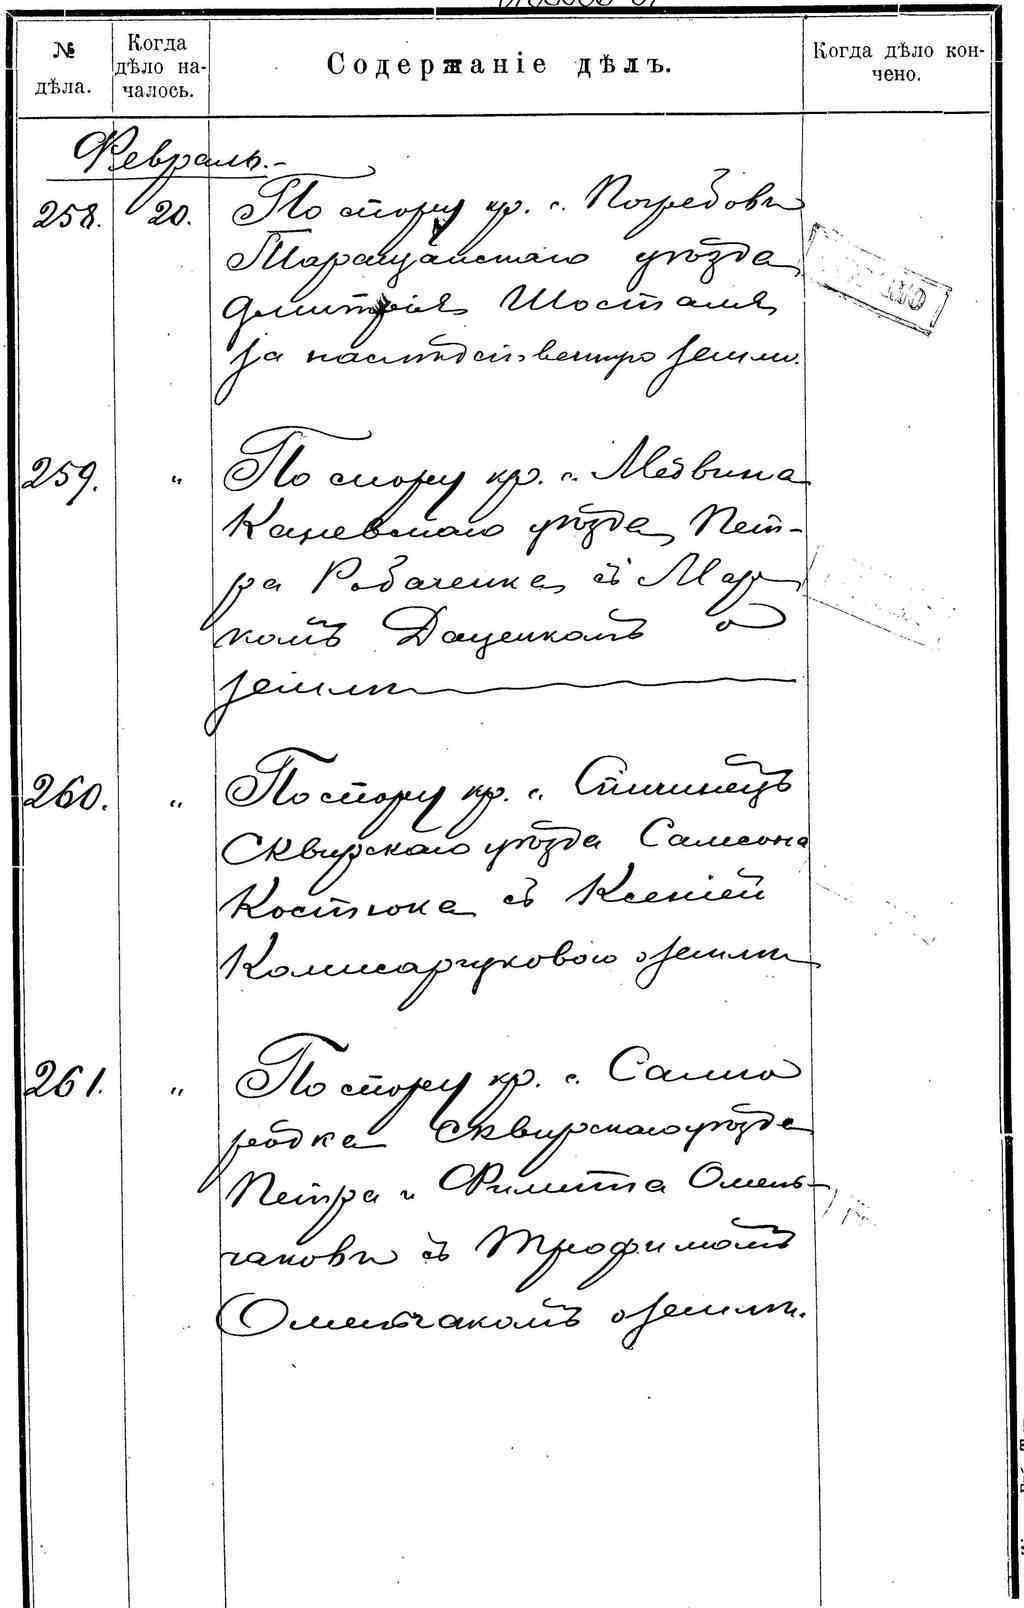 № дѣла.
Когда дѣло на-
чалось.
Содержаніе дѣлъ.
Когда дѣло кон-
чено.
Февраль.
258. 20. По спору кр. с. Погребовъ
Таращанскаго уѣзда
Дмитрія Шосталя
за наслѣдственную землю.
259. " По спору кр. с. Медвина
Каневскаго уѣзда Пет-
ра Робаченка съ Мар
комъ Даценкомъ о
землѣ
260. " По спору кр. с. Спичинецъ
Сквирскаго уѣзда Самсона
Костюка съ Ксеніей
Комисаруковою о землѣ
261. " По спору кр. с. Самго
родка Сквирскаго уѣзда
Петра и Филиппа Омель-
чаковъ съ Трофимомъ
Омельчакомъ о землѣ.